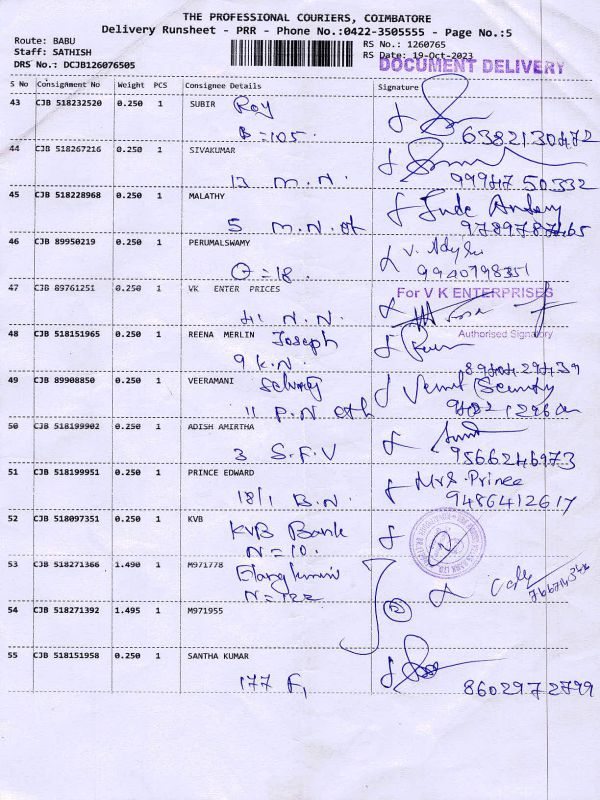 THE PROFESSIONAL COURIERS, COIMBATORE
Delivery Runsheet - PRR - Phone No.:0422-3505555 - Page No.:5
Route: BABU
Staff: SATHISH
DRS No.: DCJB126076505
RS No.: 1260765
RS Date: 19-Oct-2023
DOCUMENT DELIVERY
S No Consignment No Weight PCS Consignee Details Signature
43 CJB 518232520 0.250 1 SUBIR Roy
B = 105. 6382130472
44 CJB 518267216 0.250 1 SIVAKUMAR
13 M.N. 9994750332
45 CJB 518228968 0.250 1 MALATHY
5 M.N. 9789787465
46 CJB 89950219 0.250 1 PERUMALSWAMY
= 18. 9940798351
47 CJB 89761251 0.250 1 VK ENTER PRICES For V K ENTERPRISES
N.N.
Authorised Signatory
48 CJB 518151965 0.250 1 REENA MERLIN Joseph
9 K.N.
49 CJB 89908850 0.250 1 VEERAMANI
11 P.N (Security
50 CJB 518199902 0.250 1 ADISH AMIRTHA
3 S.F.V 9566246973
51 CJB 518199951 0.250 1 PRINCE EDWARD Mrs. Prince
18/1 B.N. 9486412617
52 CJB 518097351 0.250 1 KVB
KVB Bank
N = 10.
53 CJB 518271366 1.490 1 M971778
N = 122
54 CJB 518271392 1.495 1 M971955
55 CJB 518151958 0.250 1 SANTHA KUMAR
177 F1 8602972799